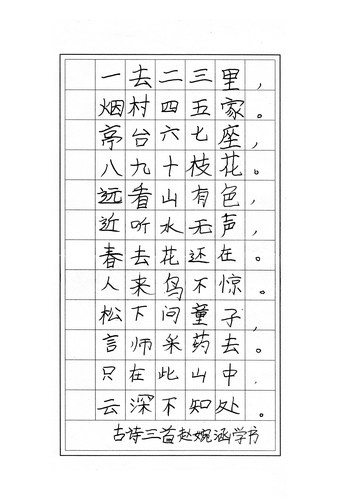 一去二三里，
烟村四五家。
亭台六七座，
八九十枝花。
远看山有色，
近听水无声，
春去花还在。
人来鸟不惊。
松下问童子，
言师采药去。
只在此山中.
云深不知处。
古诗三首赵婉涵学书